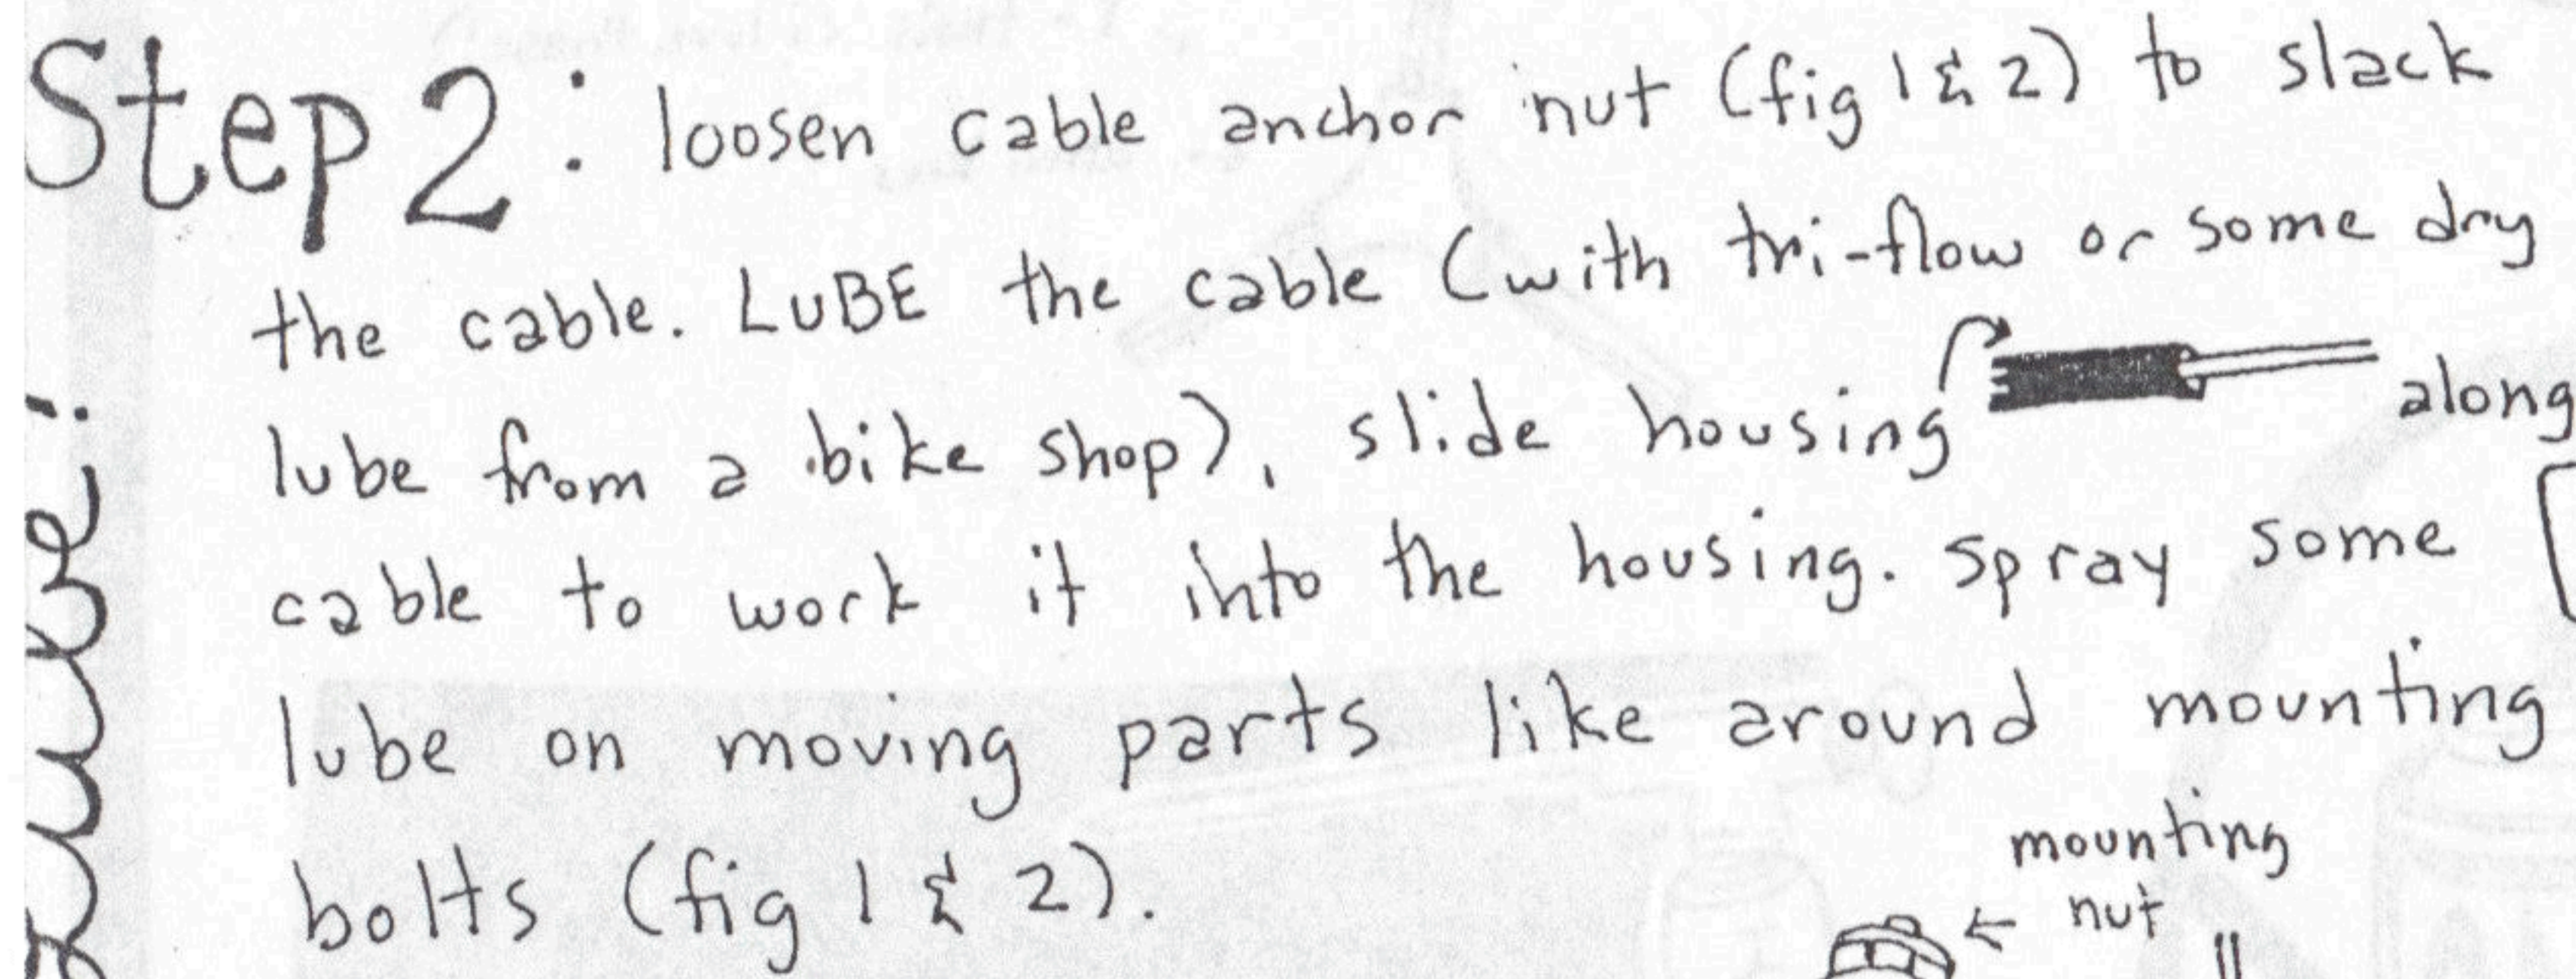 Step 2: loosen cable anchor nut (fig 1 & 2) to slack
the cable. LUBE the cable (with tri-flow or some dry
lube from a bike shop), slide housing along
cable to work it into the housing. spray some
lube on moving parts like around mounting
bolts (fig 1 & 2).
mounting
nut